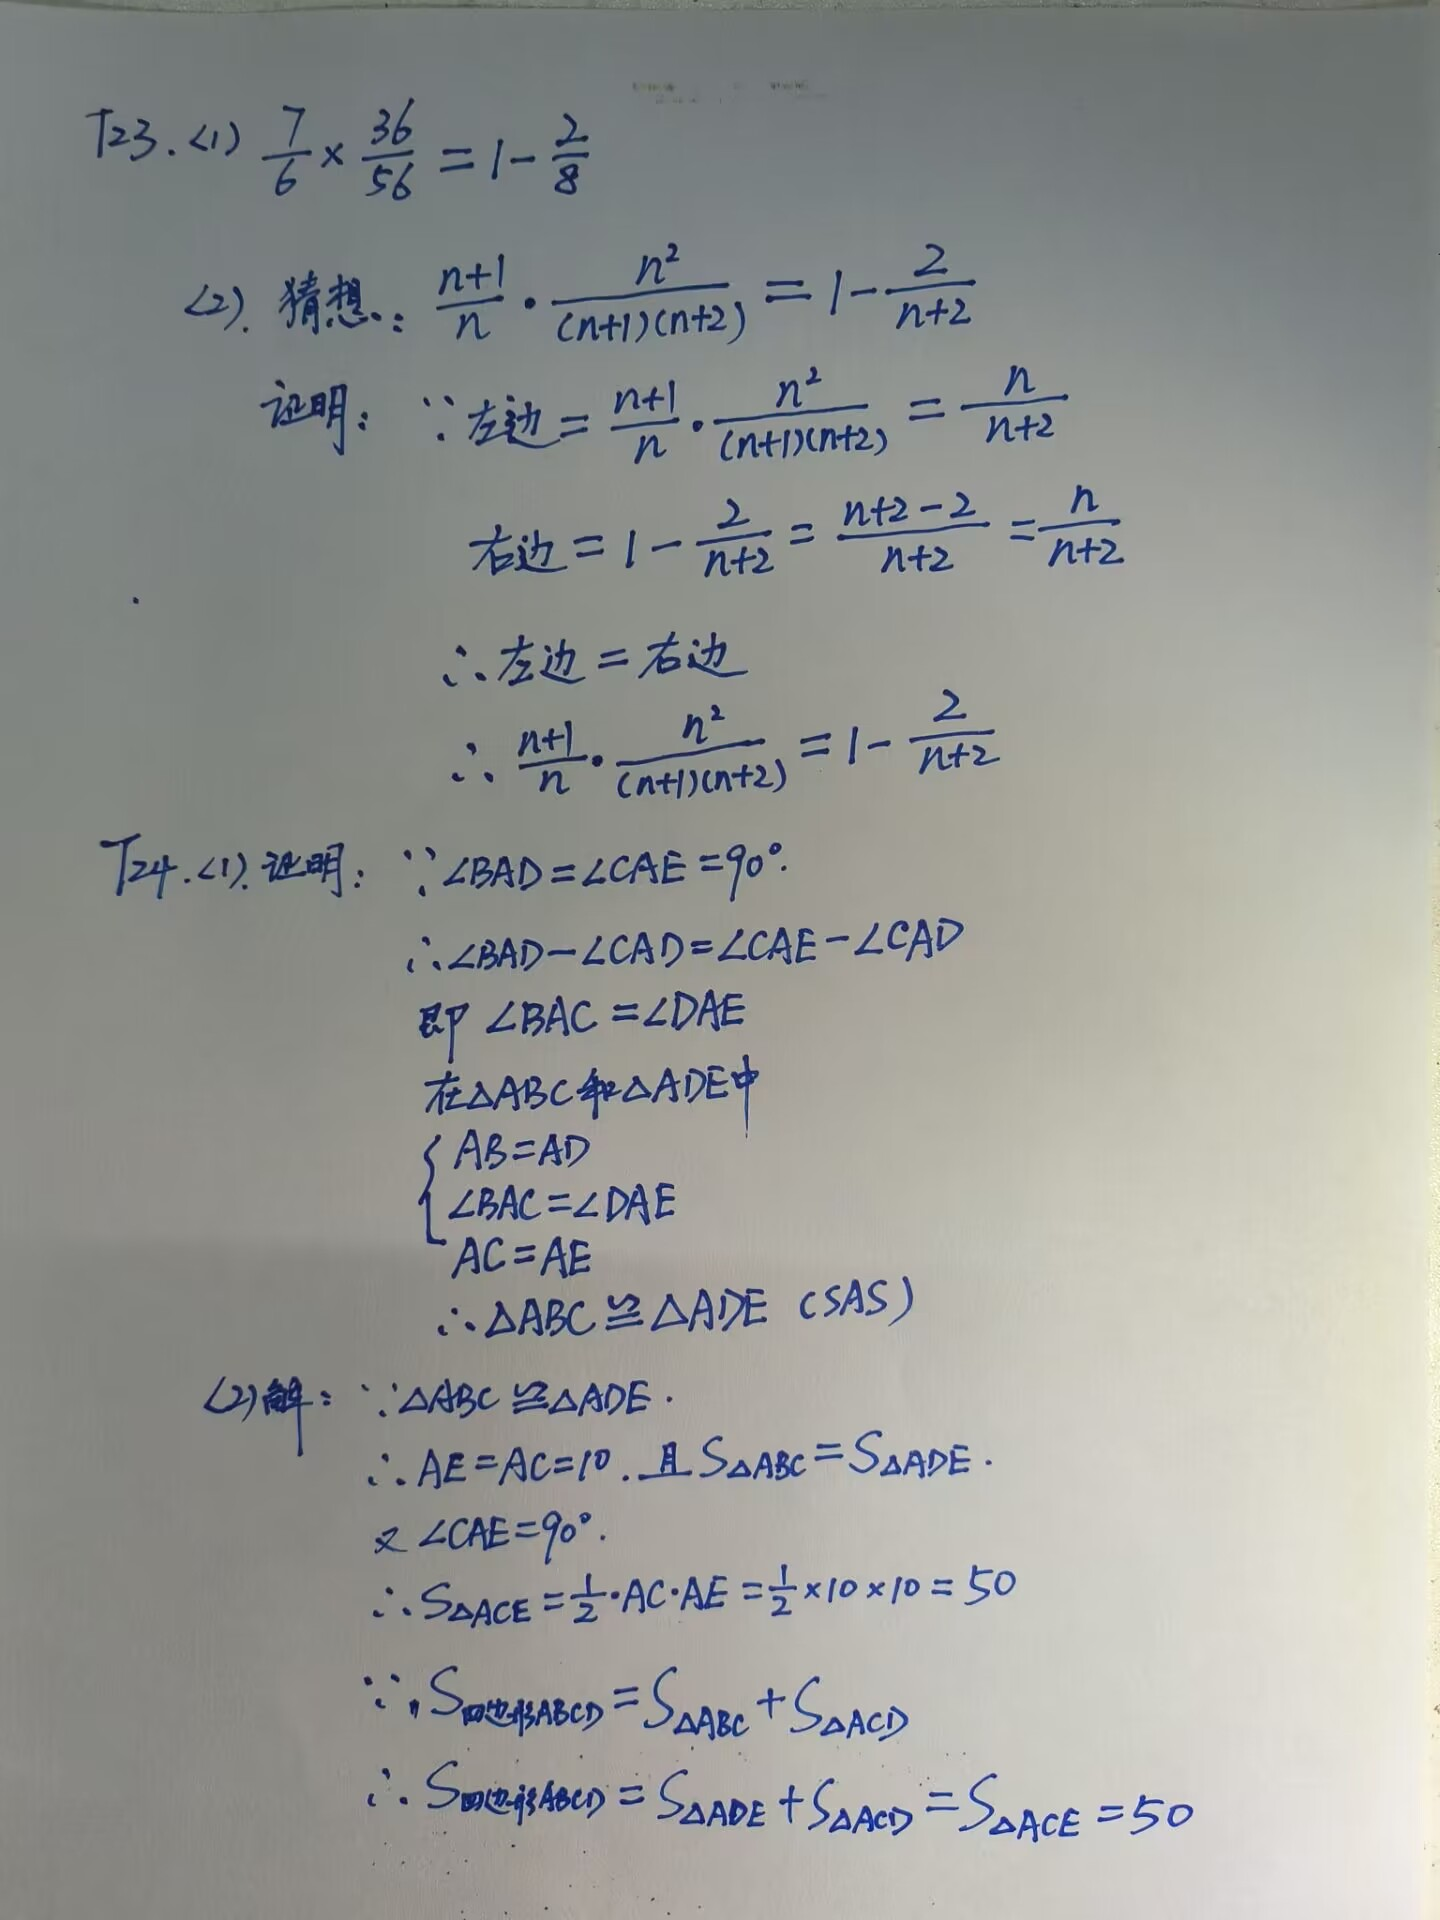 T23.(1) 7/6 × 36/56 = 1 - 2/8
(2). 猜想: (n+1)/n · n²/((n+1)(n+2)) = 1 - 2/(n+2)
证明: ∵左边 = (n+1)/n · n²/((n+1)(n+2)) = n/(n+2)
右边 = 1 - 2/(n+2) = (n+2-2)/(n+2) = n/(n+2)
∴左边 = 右边
∴ (n+1)/n · n²/((n+1)(n+2)) = 1 - 2/(n+2)
T24.(1).证明: ∵∠BAD=∠CAE=90°.
∴∠BAD-∠CAD=∠CAE-∠CAD
即 ∠BAC=∠DAE
在△ABC和△ADE中
{ AB=AD
∠BAC=∠DAE
AC=AE
∴△ABC≌△ADE (SAS)
(2)解: ∵△ABC≌△ADE.
∴AE=AC=10.且S△ABC=S△ADE.
又∠CAE=90°.
∴S△ACE=1/2·AC·AE=1/2×10×10=50
∵S四边形ABCD=S△ABC+S△ACD
∴S四边形ABCD=S△ADE+S△ACD=S△ACE=50